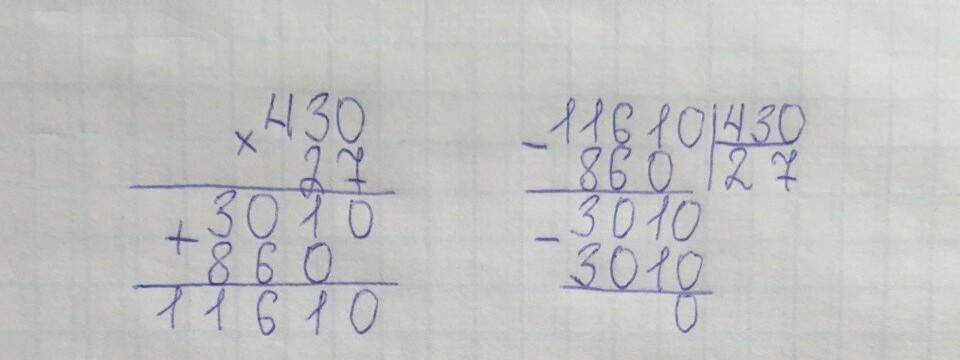 ×430
27
+3010
860
11610
-11610|430
860 |27
-3010
3010
0